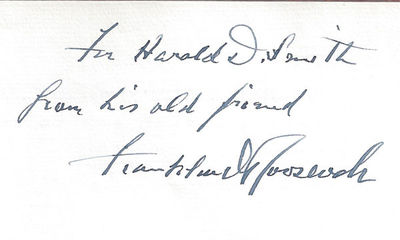 For Harold D. Smith
from his old friend
Franklin D Roosevelt